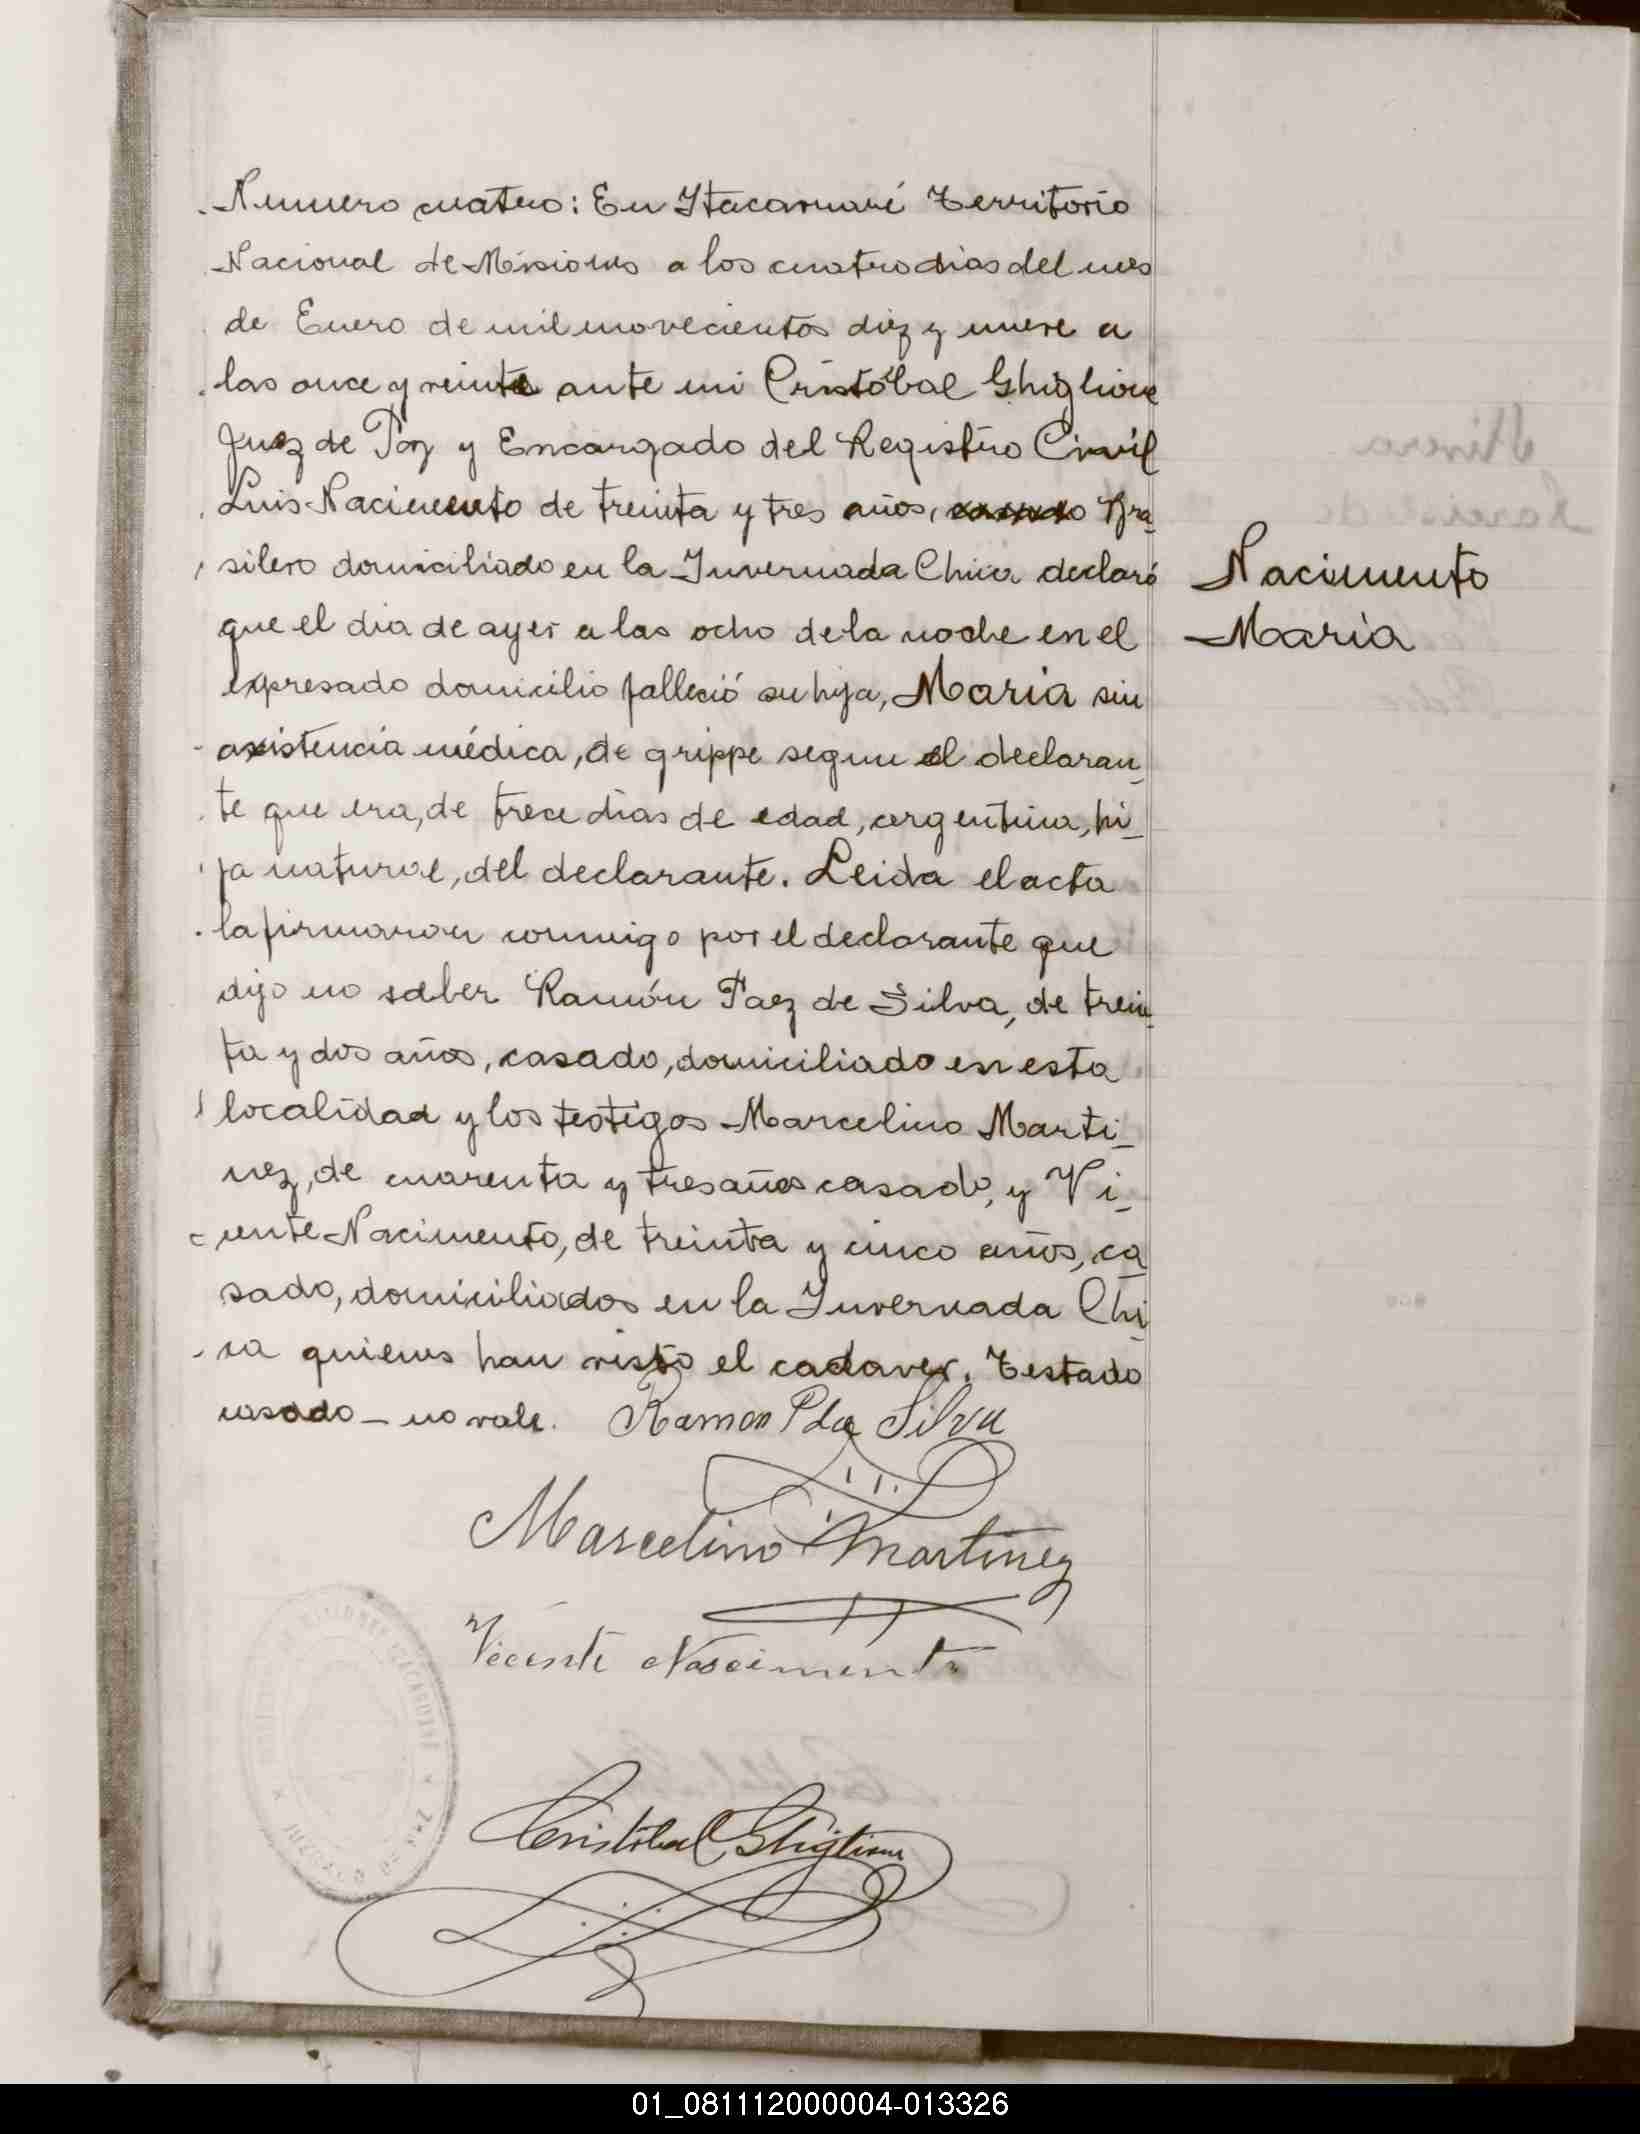 Numero cuatro: En Itacaruaré Territorio
Nacional de Misiones a los cuatro dias del mes
de Enero de mil novecientos diez y nueve a
las once y veinte ante mi Cristóbal Ghiglione
Juez de Paz y Encargado del Registro Civil
Luis Nacimento de treinta y tres años, casado Bra-
silero domiciliado en la Invernada Chica declaró
que el dia de ayer a las ocho de la noche en el
expresado domicilio falleció su hija, Maria sin
asistencia médica, de grippe segun el declaran-
te que era, de trece dias de edad, argentina, hi-
ja natural, del declarante. Leida el acta
la firmaron conmigo por el declarante que
dijo no saber Ramón Paez de Silva, de trein-
ta y dos años, casado, domiciliado en esta
localidad y los testigos Marcelino Marti-
nez, de cuarenta y tres años casado, y Vi-
cente Nacimento, de treinta y cinco años, ca-
sado, domiciliados en la Invernada Chi-
ca quienes han visto el cadaver. Testado
casado – no vale. Ramon P da Silva
Nacimento
Maria
Marcelino Martinez
Vicente Nascimento
Cristóbal Ghiglione
01_081112000004-013326